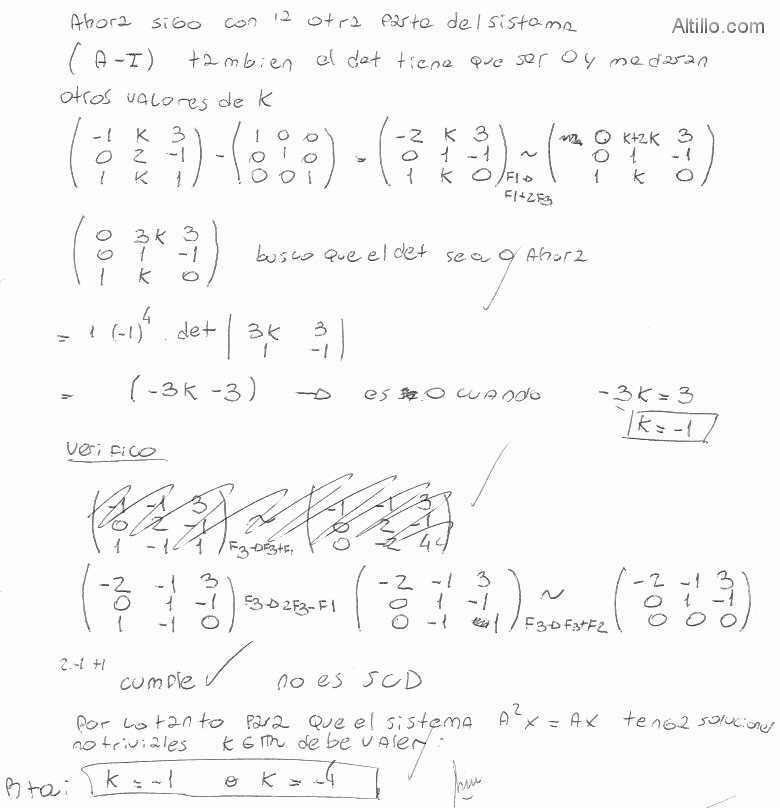 Altillo.com
Ahora sigo con la otra parte del sistema
(A-I) tambien el det tiene que ser 0 y me daran
otros valores de K
(-1 K 3) - (1 0 0) = (-2 K 3) ~ (0 K+2K 3)
(0 2 -1) (0 1 0) (0 1 -1) (0 1 -1)
(1 K 1) (0 0 1) (1 K 0) F1→ (1 K 0)
F1+2F3
(0 3K 3)
(0 1 -1) busco que el det sea 0 Ahora
(1 K 0)
= 1 (-1)^4 . det | 3K 3 |
| 1 -1 |
= (-3K -3) → es 0 cuando -3K = 3
K = -1
Verifico
(-1 -1 3) ~ (-1 -1 3)
(0 2 -1) (0 2 -1)
(1 -1 1) F3→F3+F1 (0 -2 4)
(-2 -1 3) (-2 -1 3) ~ (-2 -1 3)
(0 1 -1) F3→2F3-F1 (0 1 -1) (0 1 -1)
(1 -1 0) (0 -1 1) F3→F3+F2 (0 0 0)
2.-1 +1
cumple ✓ no es SCD
Por lo tanto para que el sistema A²x = Ax tenga soluciones
no triviales K ∈ ℝ debe valer:
Rta: K = -1 o K = -4